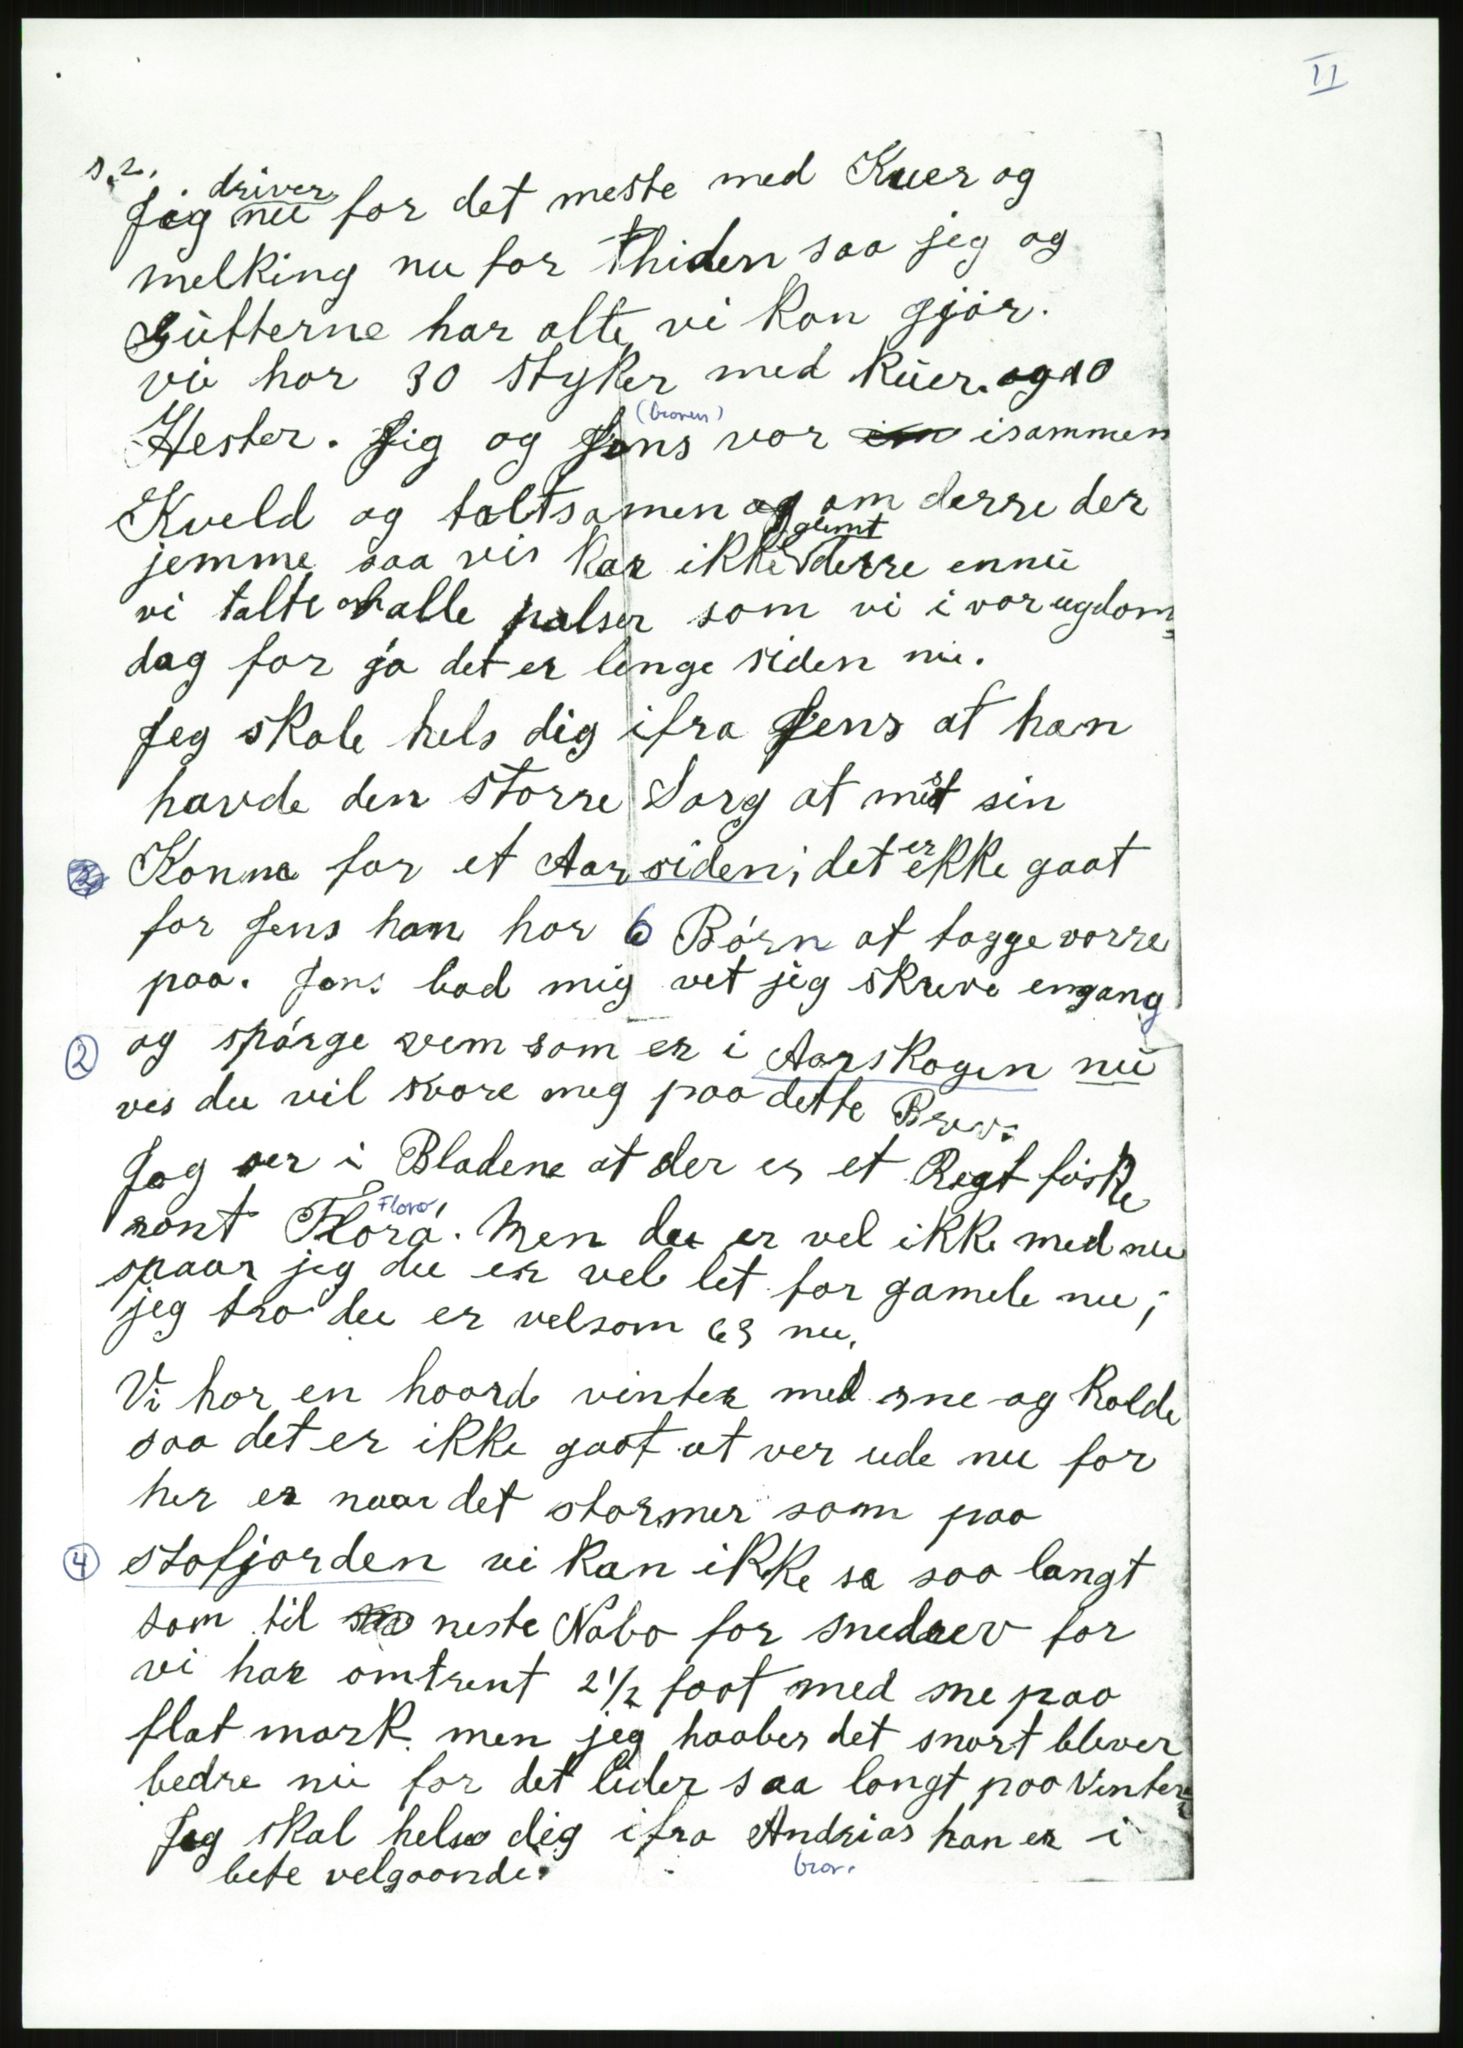 II
s. 2.
driver
Jeg nu for det meste med Kuer og
melking nu for Thiden saa jeg og
Gutterne har alte vi kan gjør.
vi har 30 styker med kuer. og 10
(broren)
Hester. Jig og Jens var isammen
Kveld og taltsamen og om derre der
glemt
jemme saa vis har ikke derre ennu
vi talte om alle pulser som vi i vor ugdom
dag for ja det er lenge siden nu.
Jeg skale hels dig ifra Jens at han
havde den storre Sorg at mist sin
Konne for et Aar siden; det er ekke gaat
for Jens han har 6 Børn at tagge varre
paa. Jens bad mig vet jeg skreve engang
2 og spørge vem som er i Aarskogen nu
ves du vil svare meg paa dette Brev.
Jeg ser i Bladene at der er et Regt fiske
Florø
ront Florø. Men du er vel ikke med nu
spaar jeg du er vel let for gamele nu;
jeg tro du er velsom 63 nu.
Vi har en haard vinter med sne og kolde
saa det er ikke gaat at ver ude nu for
her er naar det stormer som paa
4 stofjorden vi kan ikke se saa langt
som til neste Nabo for snedrev for
vi har omtrent 2 1/2 foot med sne paa
flat mark. men jeg haaber det snart blever
bedre nu for det lider saa langt paa Vinter
Jeg skal helse dig ifra Andrias han er i
bror.
bete velgaande.